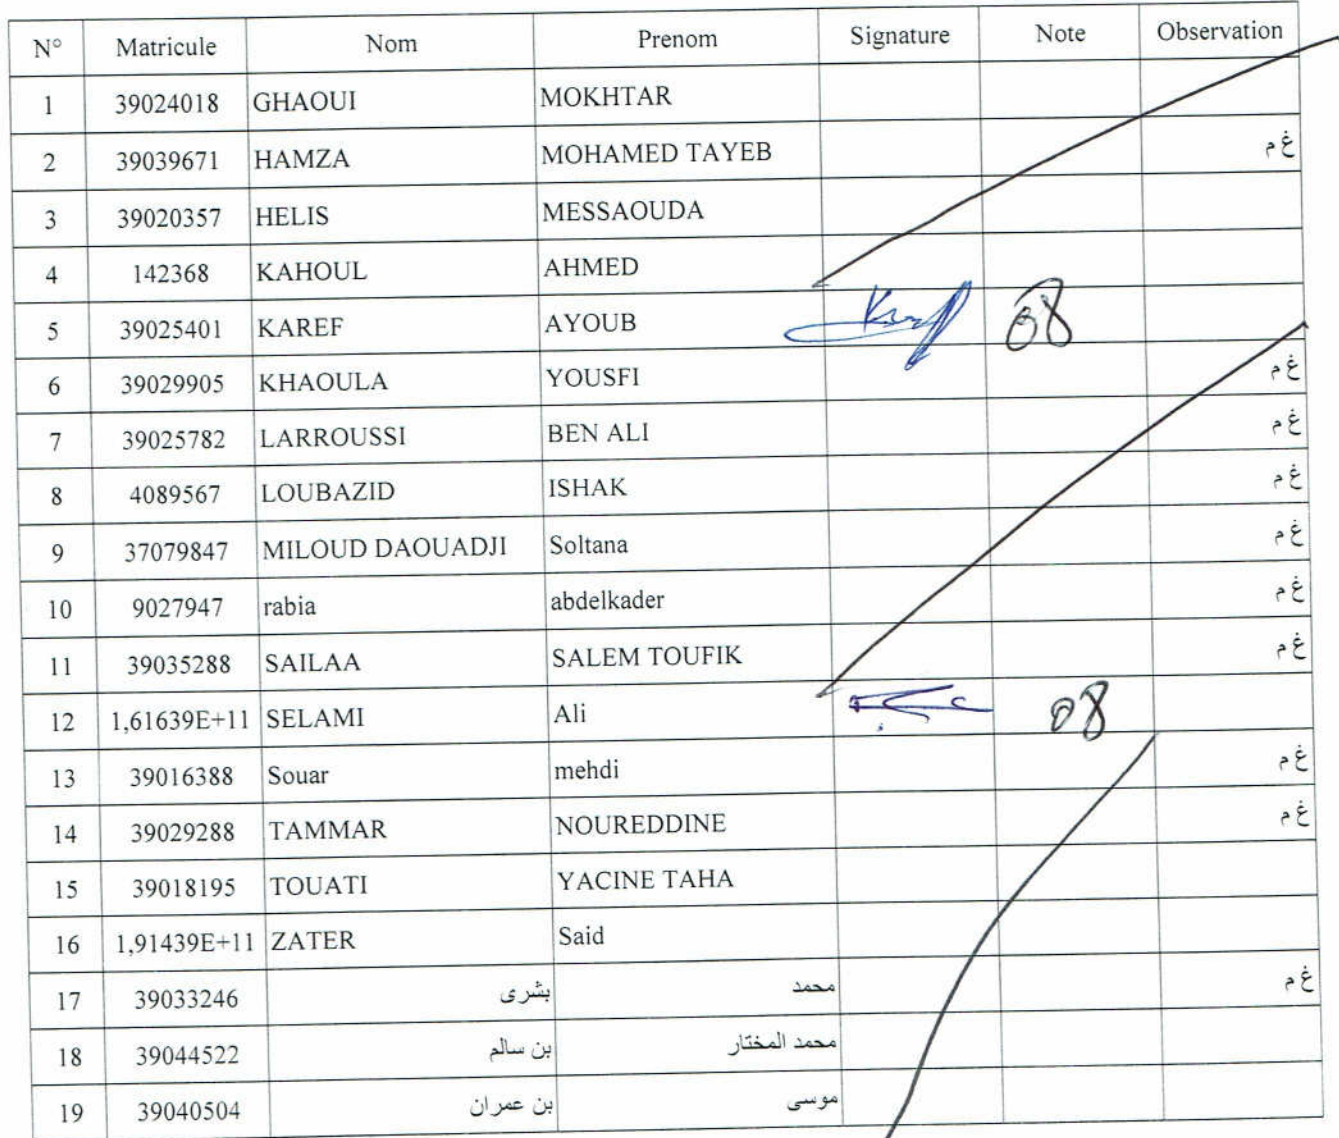 N° Matricule Nom Prenom Signature Note Observation
1 39024018 GHAOUI MOKHTAR
2 39039671 HAMZA MOHAMED TAYEB غ م
3 39020357 HELIS MESSAOUDA
4 142368 KAHOUL AHMED
5 39025401 KAREF AYOUB 08
6 39029905 KHAOULA YOUSFI غ م
7 39025782 LARROUSSI BEN ALI غ م
8 4089567 LOUBAZID ISHAK غ م
9 37079847 MILOUD DAOUADJI Soltana غ م
10 9027947 rabia abdelkader غ م
11 39035288 SAILAA SALEM TOUFIK غ م
12 1,61639E+11 SELAMI Ali 08
13 39016388 Souar mehdi غ م
14 39029288 TAMMAR NOUREDDINE غ م
15 39018195 TOUATI YACINE TAHA
16 1,91439E+11 ZATER Said
17 39033246 بشرى محمد غ م
18 39044522 بن سالم محمد المختار
19 39040504 بن عمران موسى